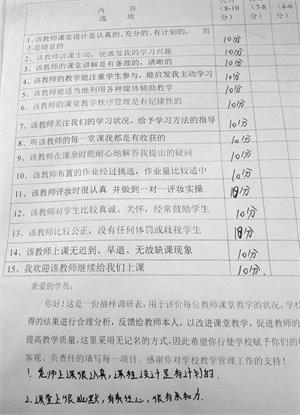 内 容
选 项
(8-10
分)
(7-8
分)
(4-6
分)
1、该教师课堂设计是认真的、充分的、有计划的, 而
不是随意的 10分
2、该教师讲课生动,能激发我的学习兴趣 10分
3、该教师的课堂讲解是有条理的,清晰的 10分
4、该教师的教学能注重学生参与,能启发我主动学习 10分
5、该教师能适当地利用各种媒体辅助教学 10分
6、该教师的课堂教学秩序管理是有纪律性的 10分
7、该教师关注我们的学习状况、给予学习方法的指导 10分
8、听该教师的每一堂课我都是有收获的 10分
9、该教师在课余时能耐心地解答我提出的疑问 10分
10、该教师布置的作业经过挑选,作业量比较适中 10分
11、该教师评妆时很认真 并做到一对一评妆实操 10分
12、该教师对学生比较真诚、关怀,经常鼓励学生 10分
13、该教师比较公正,没有任何体罚或歧视学生 10分
14、该教师上课无迟到、早退、无故缺课现象 10分
15、我欢迎该教师继续给我们上课 10分
亲爱的学员:
你好!这是一份抽样调研表,用于评价每位教师课堂教学的状况,学校
得的结果进行合理分析,反馈给教师本人,以改进课堂教学,促进教师的
提高教学质量,这里采用无记名的方式,因此希望你行使学校赋予你们的
客观、负责任的填写每一项目。感谢你对学校教学管理工作的支持!
1. 老师上课很认真,课程设计是有计划的.
2. 课堂上很幽默,有责任心,很有亲和力.